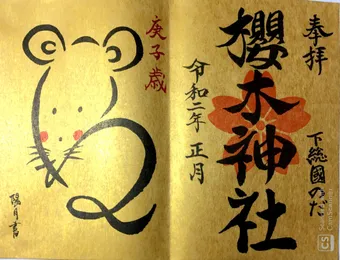 奉拝
下総國のだ
櫻木神社
令和二年 正月
庚子歳
陽月書
CS